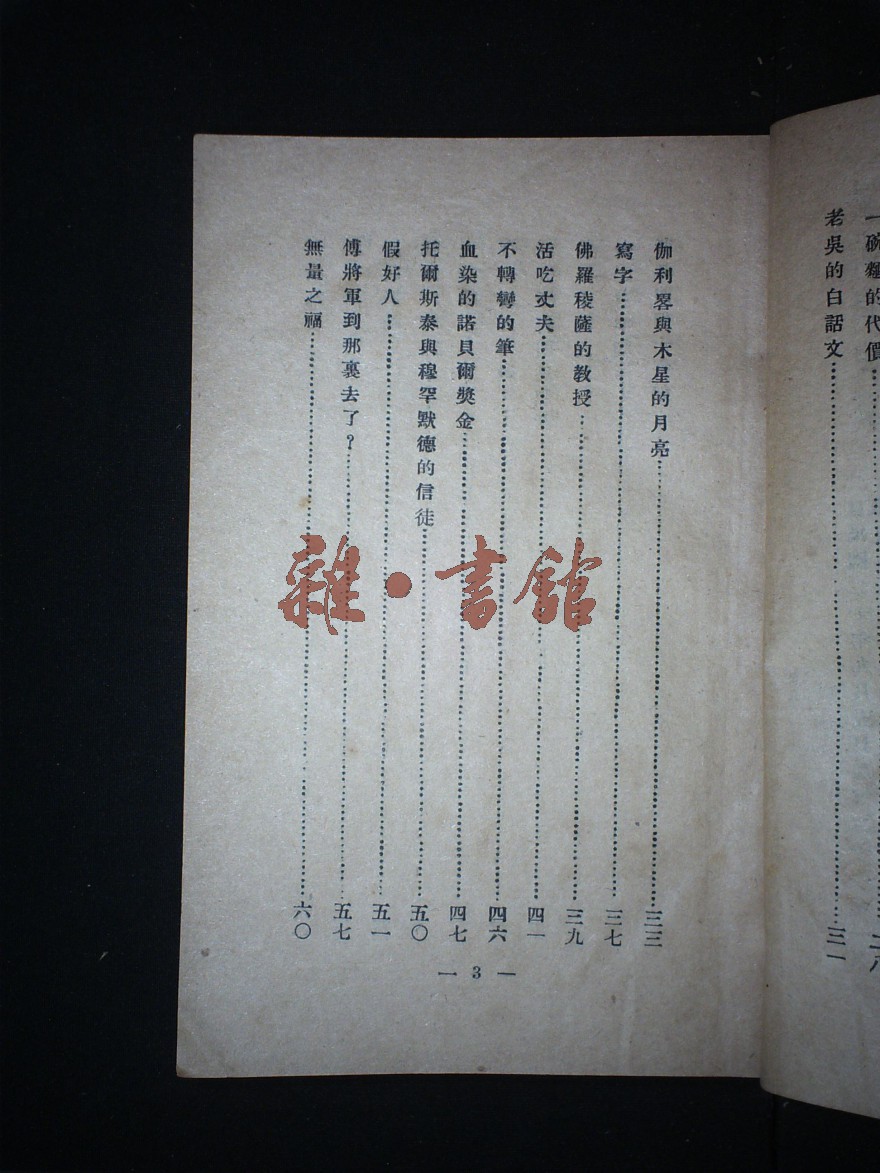 一碗麵的代價⋯⋯二八
老吳的白話文⋯⋯三一
伽利畧與木星的月亮⋯⋯三三
寫字⋯⋯三七
佛羅稜薩的教授⋯⋯三九
活吃丈夫⋯⋯四一
不轉彎的筆⋯⋯四六
血染的諾貝爾獎金⋯⋯四七
托爾斯泰與穆罕默德的信徒⋯⋯五〇
假好人⋯⋯五一
傅將軍到那裏去了？⋯⋯五七
無量之福⋯⋯六〇
— 3 —
雜·書館